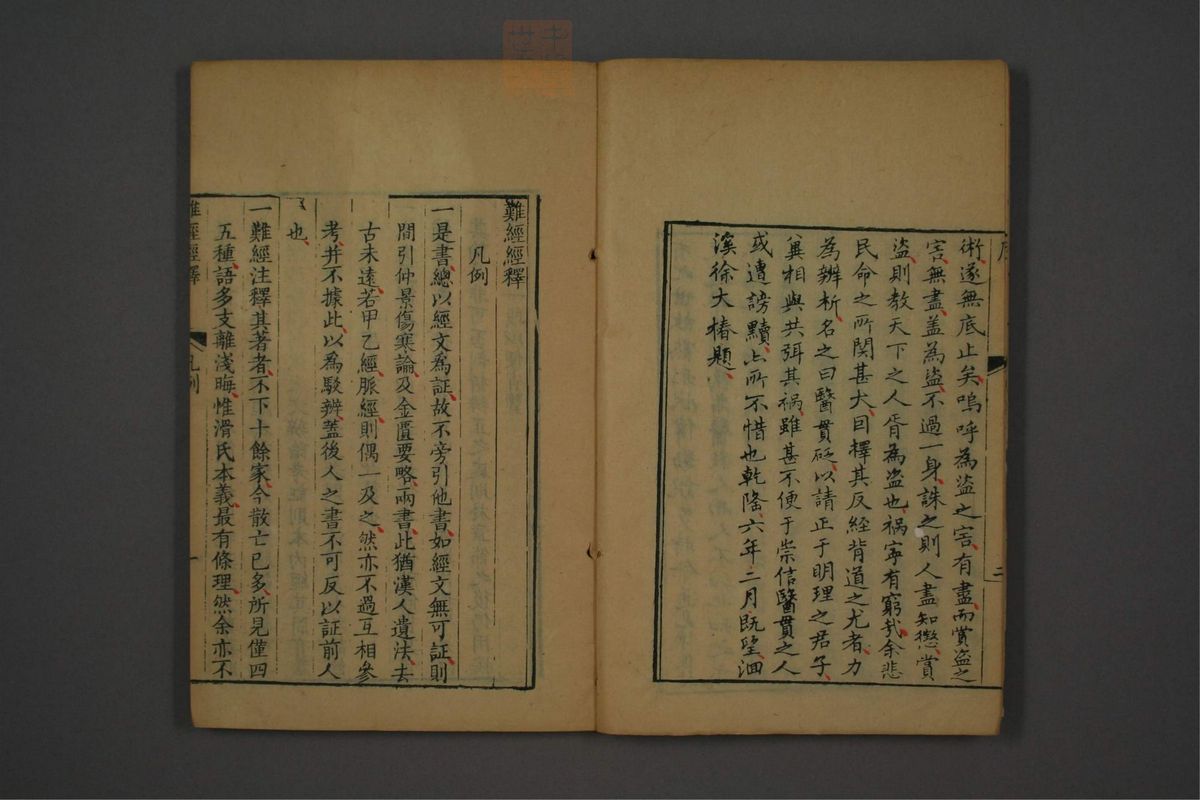 術遂無底止矣嗚呼為盜之害有盡而賞盜之
害無盡蓋為盜不過一身誅之則人盡知懲賞
盜則教天下之人胥為盜也禍寧有窮哉余悲
民命之所関甚大因擇其反經背道之尤者力
為辨析名之曰醫貫砭以請正于明理之君子
冀相與共弭其禍雖甚不便于崇信醫貫之人
或遭謗黷亦所不惜也乾隆六年二月既望洄
溪徐大椿題
二
難經經釋
凡例
一是書總以經文爲証故不旁引他書如經文無可証則
間引仲景傷寒論及金匱要略兩書此猶漢人遺法去
古未遠若甲乙經脈經則偶一及之然亦不過互相參
考并不據此以爲駁辨蓋後人之書不可反以証前人
也
一難經注釋其著者不下十餘家今散亡已多所見僅四
五種語多支離淺晦惟滑氏本義最有條理然余亦不
難經經釋
凡例
一